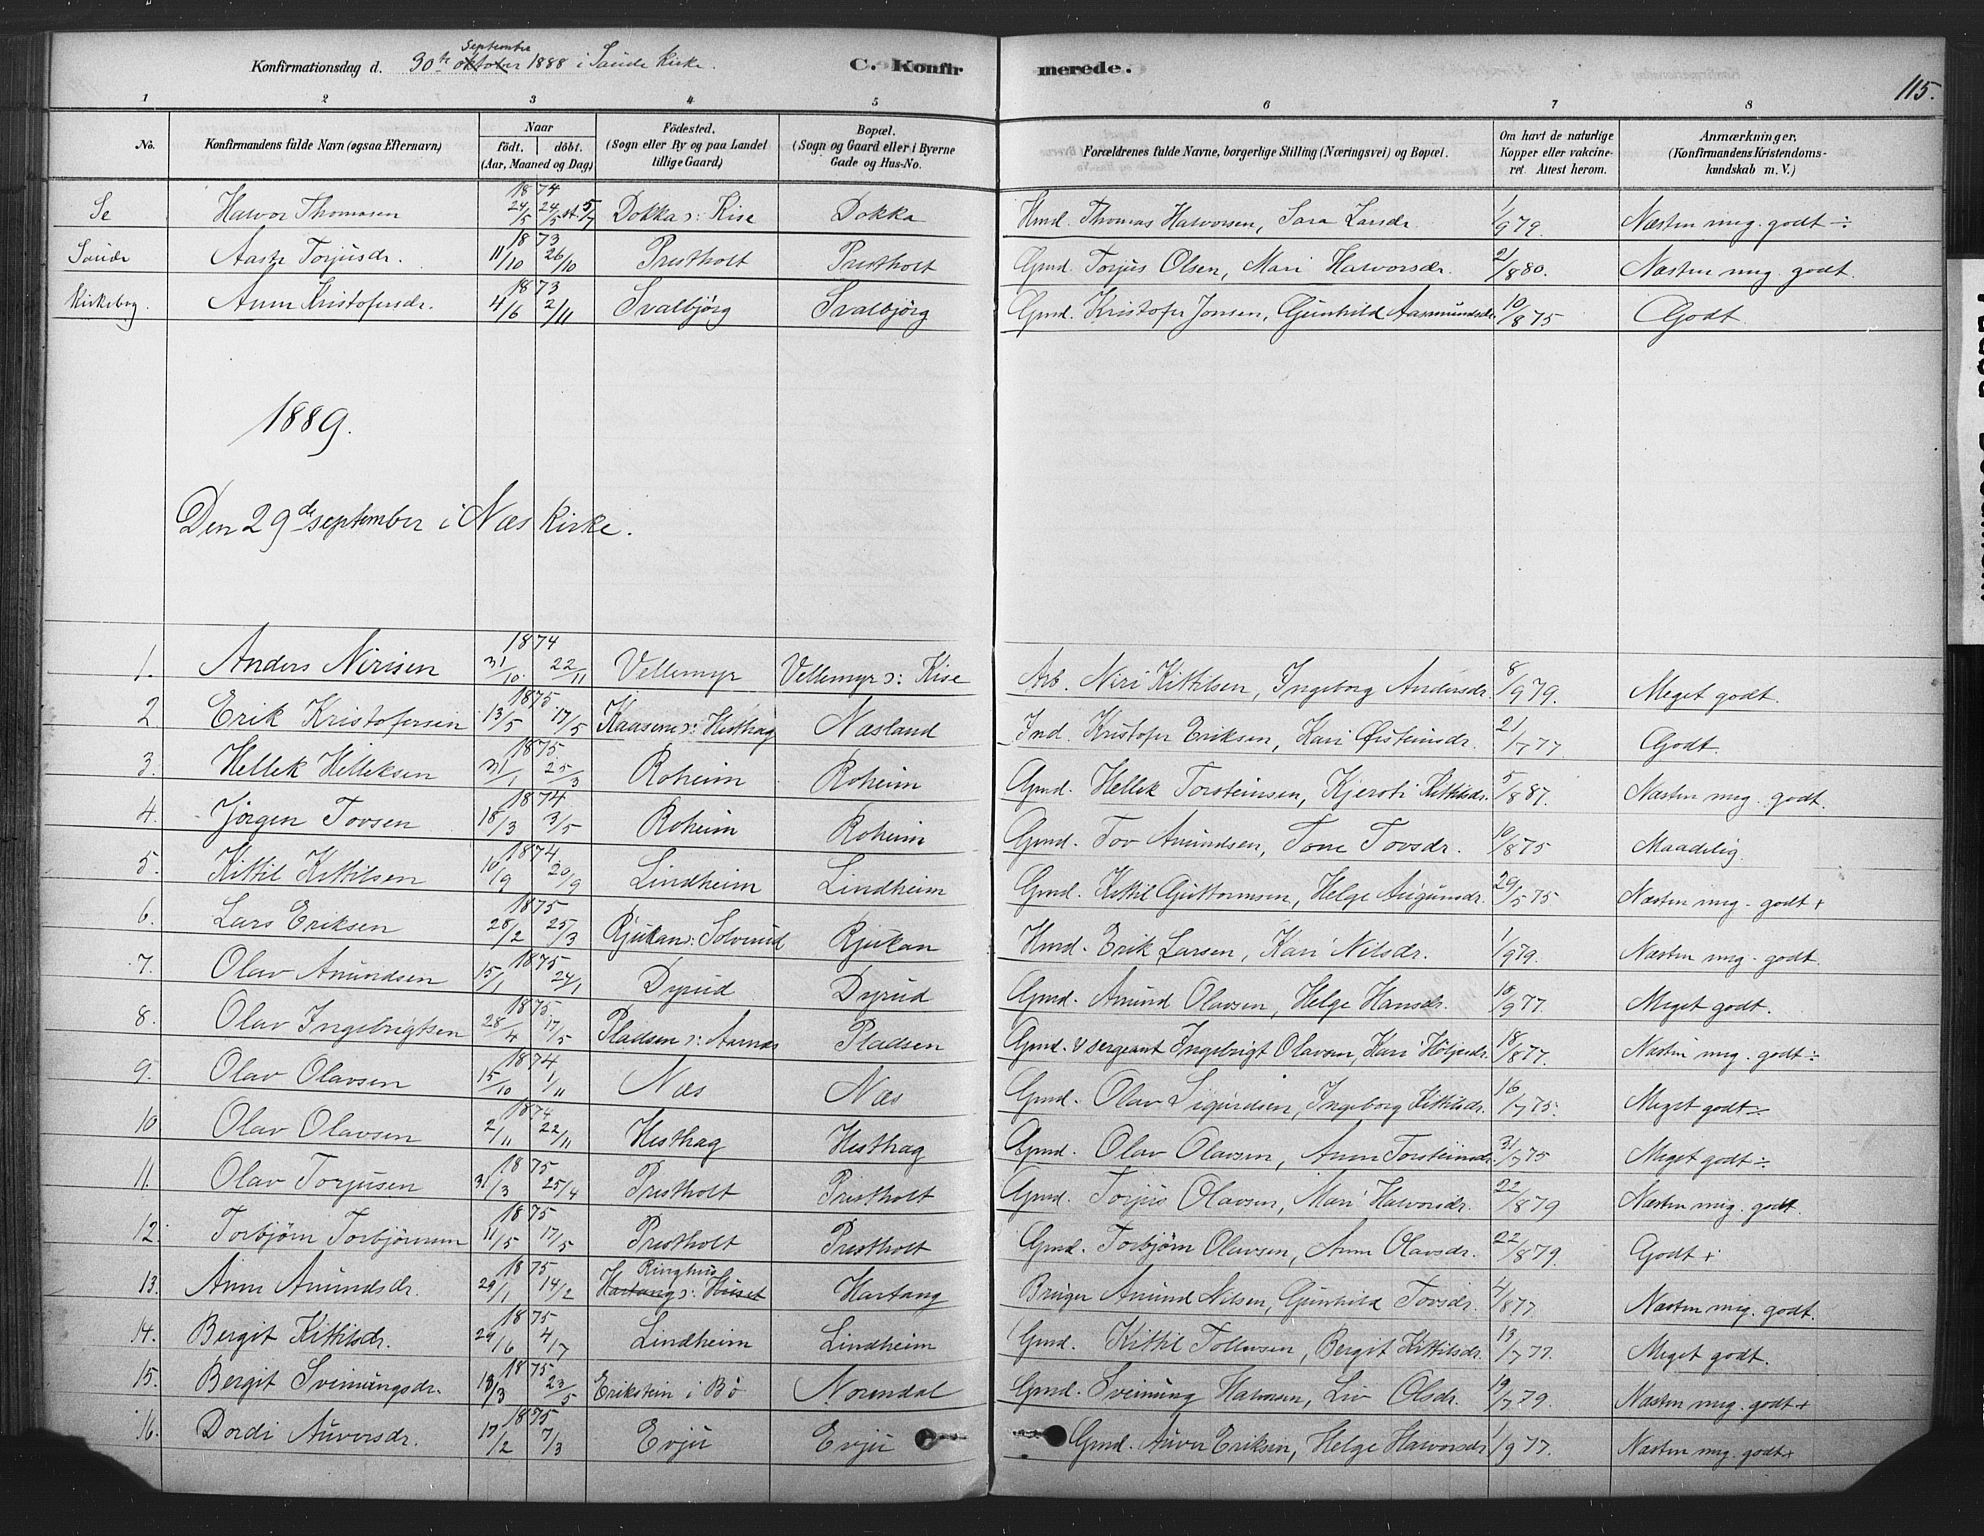 Konfirmationsdag d. 30te September oktober 1888 i Saude Kirke. C. Konfirmerede. 115.
1 2 3 4 5 6 7 8
No. Konfirmandens fulde Navn (ogsaa Efternavn) Naar født. døbt. (Aar, Maaned og Dag) Fødested. (Sogn eller By og paa Landet tillige Gaard) Bopæl. (Sogn og Gaard eller i Byerne Gade og Hus-No. Forældrenes fulde Navne, borgerlige Stilling (Næringsvei) og Bopæl. Om havt de naturlige Kopper eller vakcineret. Attest herom. Anmærkninger. (Konfirmandens Kristendomskundskab m. V.)
Halvor Thomasen 1874 24/5 24/5 st. 5/7 Dokka ɔ: Kise Dokka Hmd. Thomas Halvorsen, Sara Larsdr. 1/9 79. Næsten meg. godt ÷
Saude Aaste Torjusdr. 1873 11/10 26/10 Prestholt Prestholt Gmd. Torjus Olsen, Mari Halvorsdr. 21/8 80. Næsten meg. godt.
Kirkebog. Anne Kristofersdr. 1873 4/6 2/11 Svalbjørg Svalbjørg Gmd. Kristofer Jonsen, Gunhild Aasmundsdr. 10/8 75 Godt
1889.
Den 29de september i Næs Kirke.
1. Anders Nirisen 1874 31/10. 22/11 Vellemyr Vellemyr ɔ: Kise Arb. Niri Kittilsen, Ingeborg Andersdr. 8/9 79. Meget godt.
2. Erik Kristofersen 1875. 13/5 17/5 Kaasene ɔ: Hesthag Næsland Ind. Kristofer Eriksen, Kari Østeinsdr. 21/7 77 Godt.
3. Hellek Helleksen 1875 31/1 25/3 Roheim Roheim Gmd. Hellek Torsteinsen, Kjersti Kittilsdr. 5/8 87. Næsten meg. godt.
4. Jørgen Tovsen 1874 18/3 3/5 Roheim Roheim Gmd. Tov Amundsen, Tone Tovsdr. 10/8 75 Maadelig.
5. Kittil Kittilsen 1874 10/9 20/9 Lindheim Lindheim Gmd. Kittil Guttormsen, Helge 29/5 75 Næsten meg. godt +
6. Lars Eriksen 1875 28/2 25/3 Rjukan ɔ: Solverud Rjukan Hmd. Erik Larsen, Kari Nilsdr. 1/9 79. Næsten meg. godt.
7. Olav Amundsen 1875 15/1 24/1 Dyrud Dyrud Gmd. Amund Olavsen, Helge Hansdr. 10/9 77. Meget godt.
8. Olav Ingebrigtsen 1875 28/4 17/5 Pladsen ɔ: Aarnæs Pladsen Gmd. & sergeant Ingebrigt Olavsen, Kari Holjesdr. 18/8 77. Næsten meg. godt ÷
9. Olav Olavsen 1874 15/10 1/11 Næs Næs Gmd. Olav Sigurdsen, Ingeborg Kittilsdr. 16/7 75. Meget godt ÷
10 Olav Olavsen 1874 2/11 22/11 Hesthag Hesthag Gmd. Olav Olavsen, Anne Torsteinsdr. 31/7 75 Meget godt ÷
11. Olav Torjusen 1875 31/3 25/4 Prestholt Prestholt Gmd. Torjus Olavsen, Mari Halvorsdr. 22/8 79 Næsten meg. godt.
12. Torbjørn Torbjørnsen 1875 11/5 17/5 Prestholt Prestholt Gmd. Torbjørn Olavsen, Anne Olavsdr. 22/8 79. Godt +
13. Anne Amundsdr. 1875 29/1 14/2 Ringhus Hartang ɔ: Huset Hartang Bruger Amund Nilsen, Gunhild Tovsdr. 4/8 77. Næsten meg. godt.
14. Bergit Kittilsdr. 1875 29/6 4/7 Lindheim Lindheim Gmd. Kittil Tollevsen, Bergit Kittilsdr. 13/7 77. Meget godt.
15. Bergit Sveinungsdr. 1875 13/3 23/5 Erikstein i Bø Norendal Gmd. Sveinung Halvorsen, Liv Olsdr. 19/7 79. Næsten meg. godt +
16. Dordi Auversdr. 1875 17/2 7/3 Evju Evju Gmd. Auver Eriksen, Helge Halvorsdr. 1/9 77. Næsten meg. godt +